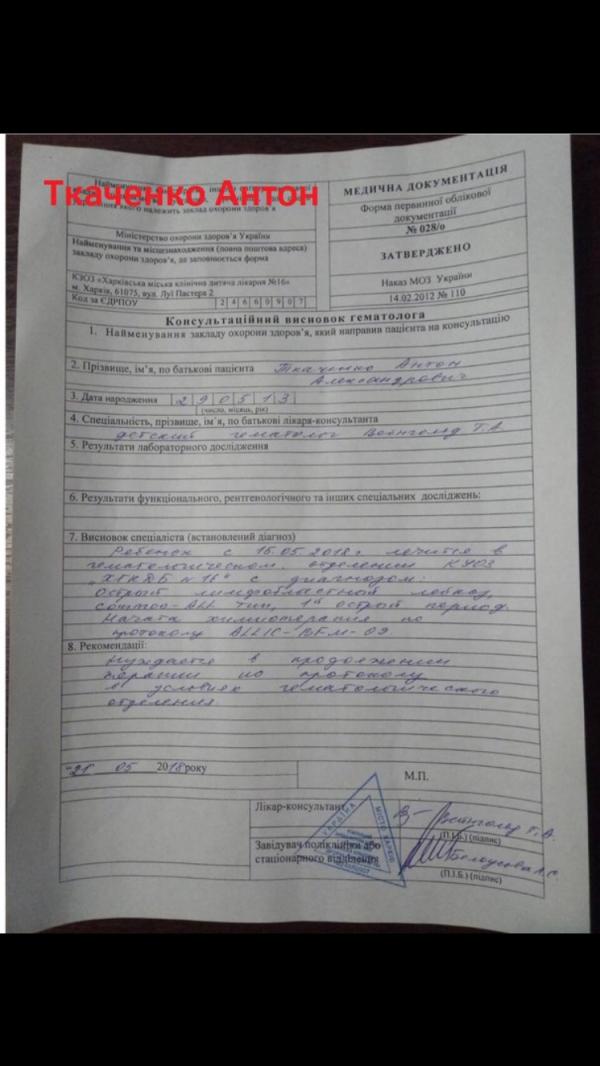 Ткаченко Антон
МЕДИЧНА ДОКУМЕНТАЦІЯ
Форма первинної облікової
документації
№ 028/о
ЗАТВЕРДЖЕНО
Наказ МОЗ України
14.02.2012 № 110
якого належить заклад охорони здоров'я
Міністерство охорони здоров'я України
Найменування та місцезнаходження (повна поштова адреса)
закладу охорони здоров'я, де заповнюється форма
КЗОЗ «Харківська міська клінічна дитяча лікарня №16»
м. Харків, 61075, вул. Луї Пастера 2
Код за ЄДРПОУ 24660907
Консультаційний висновок гематолога
1. Найменування закладу охорони здоров'я, який направив пацієнта на консультацію
2. Прізвище, ім'я, по батькові пацієнта Ткаченко Антон
Александрович
3. Дата народження 290513
(число, місяць, рік)
4. Спеціальність, прізвище, ім'я, по батькові лікаря-консультанта
детский гематолог Вейнгольд Т.А
5. Результати лабораторного дослідження
6. Результати функціонального, рентгенологічного та інших спеціальних досліджень:
7. Висновок спеціаліста (встановлений діагноз)
Ребенок с 15.05.2018г. лечится в
гематологическом. отделении КУОЗ
"ХГКДБ №16" с диагнозом:
Острый лимфобластный лейкоз,
common-ALL тип, 1й острый период.
Начата химиотерапия по
протоколу ALLIC-BFM-09
8. Рекомендації:
Нуждается в продолжении
терапии по протоколу
в условиях гематологического
отделения.
"21" 05 2018 року
М.П.
Лікар-консультант Вейнгольд Т.А.
(П.І.Б.) (підпис)
Завідувач поліклініки або
стаціонарного відділення Белоусова
(П.І.Б.) (підпис)
УКРАЇНА
МІСТО ХАРКІВ